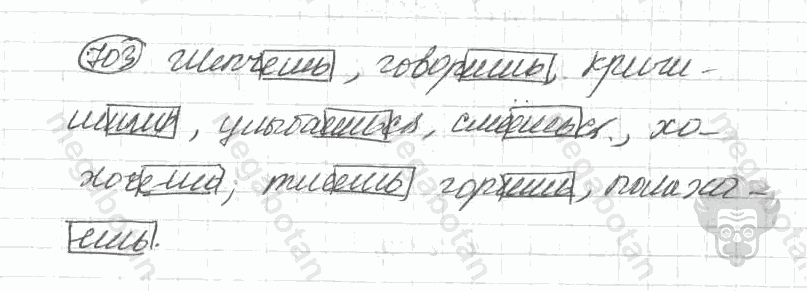 703 Шепчешь, говоришь, кричи-
шишь, улыбаешься, смеёшься, хо-
хочешь, тлеешь, горишь, полыха-
ешь.
megabotan